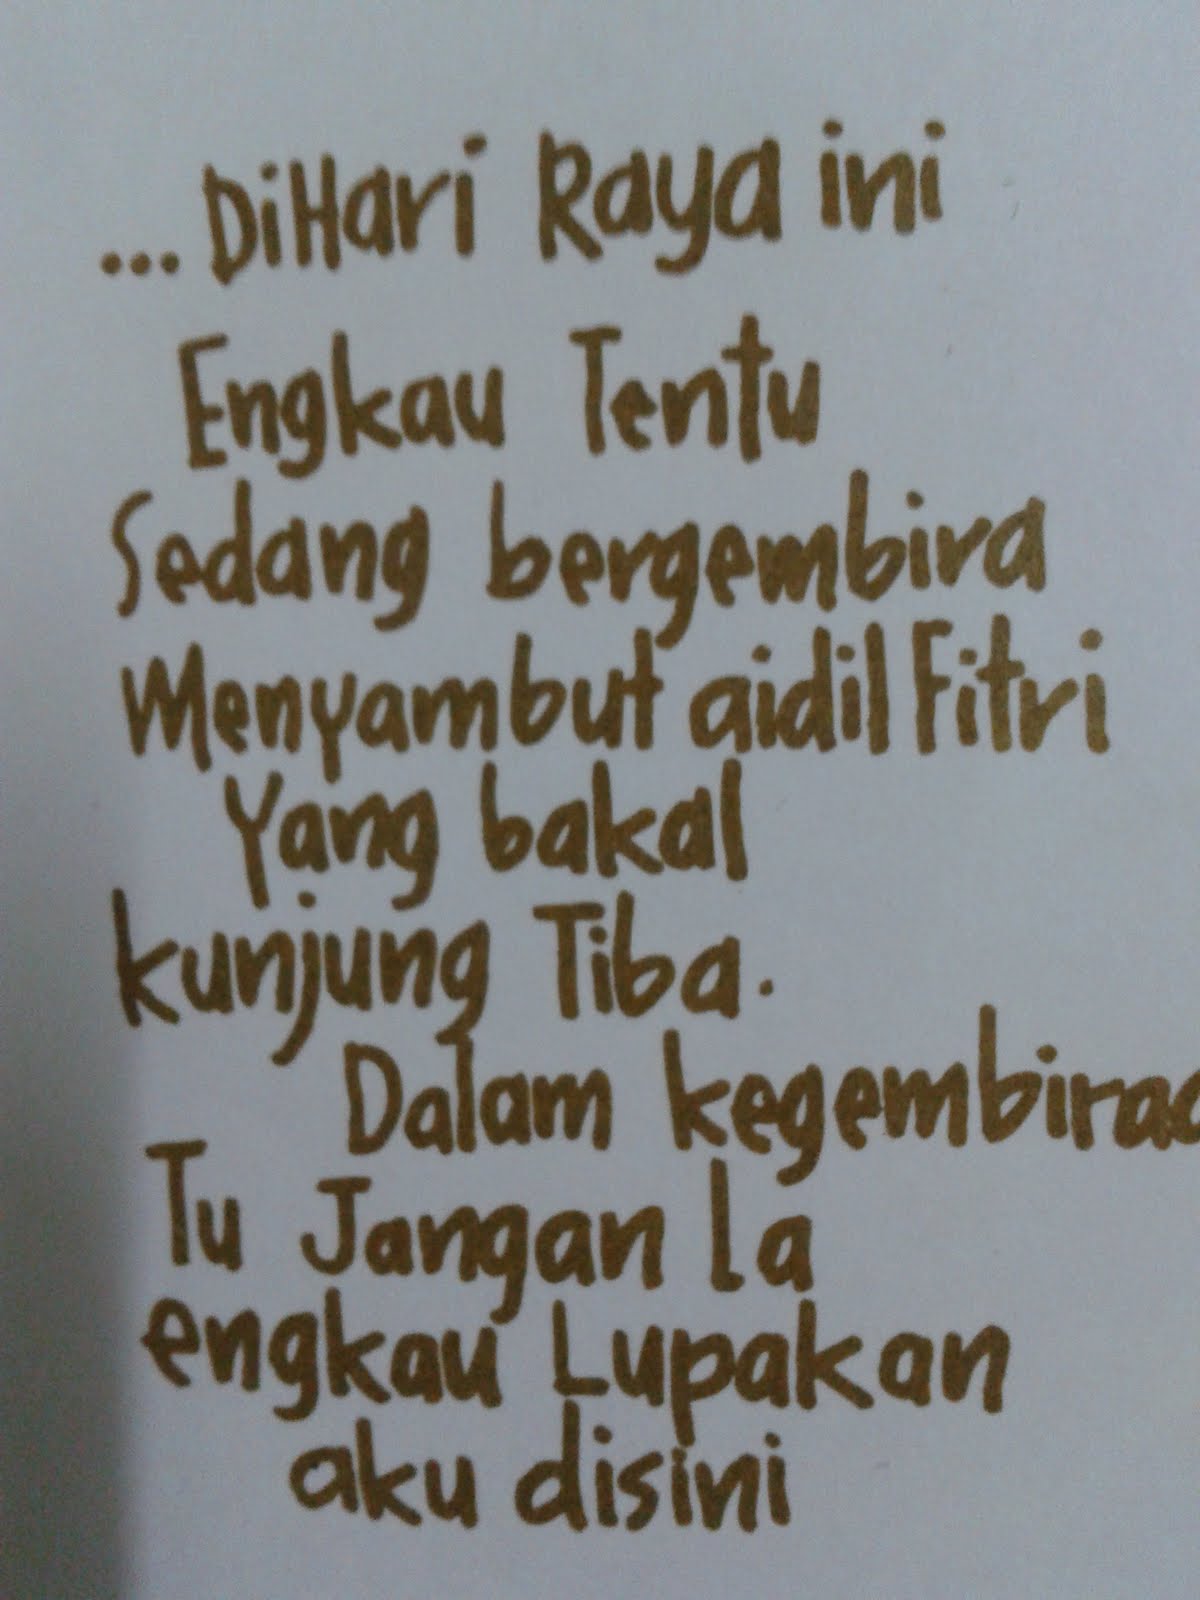 ... DiHari Raya ini
Engkau Tentu
Sedang bergembira
Menyambut aidil Fitri
Yang bakal
kunjung Tiba.
Dalam kegembiraa
Tu Jangan la
engkau Lupakan
aku disini